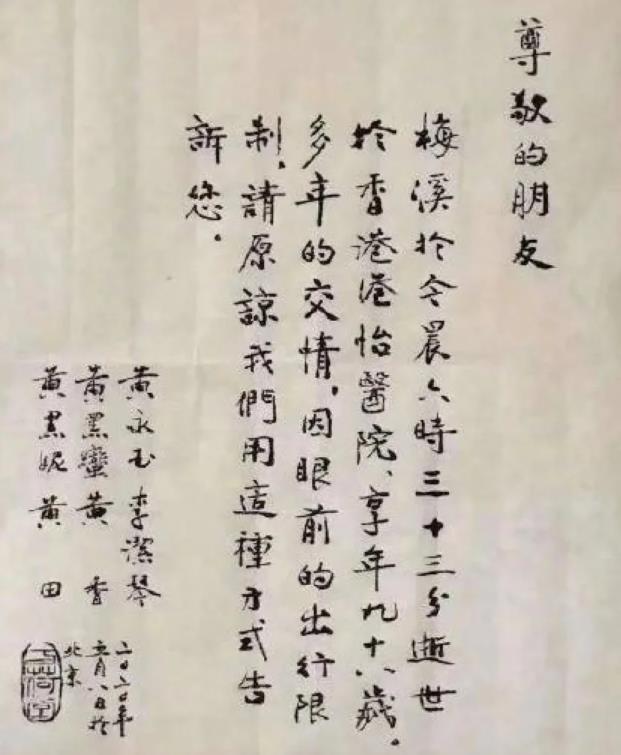 尊敬的朋友
梅溪扵今晨六時三十三分逝世
扵香港港怡醫院、享年九十八歲。
多年的交情，因眼前的出行限
制，請原諒我們用這種方式告
訴您。
黄永玉 李潔琴
黄黑蠻 黄香
黄黑妮 黄田
二〇二〇年
五月八日扵
北京